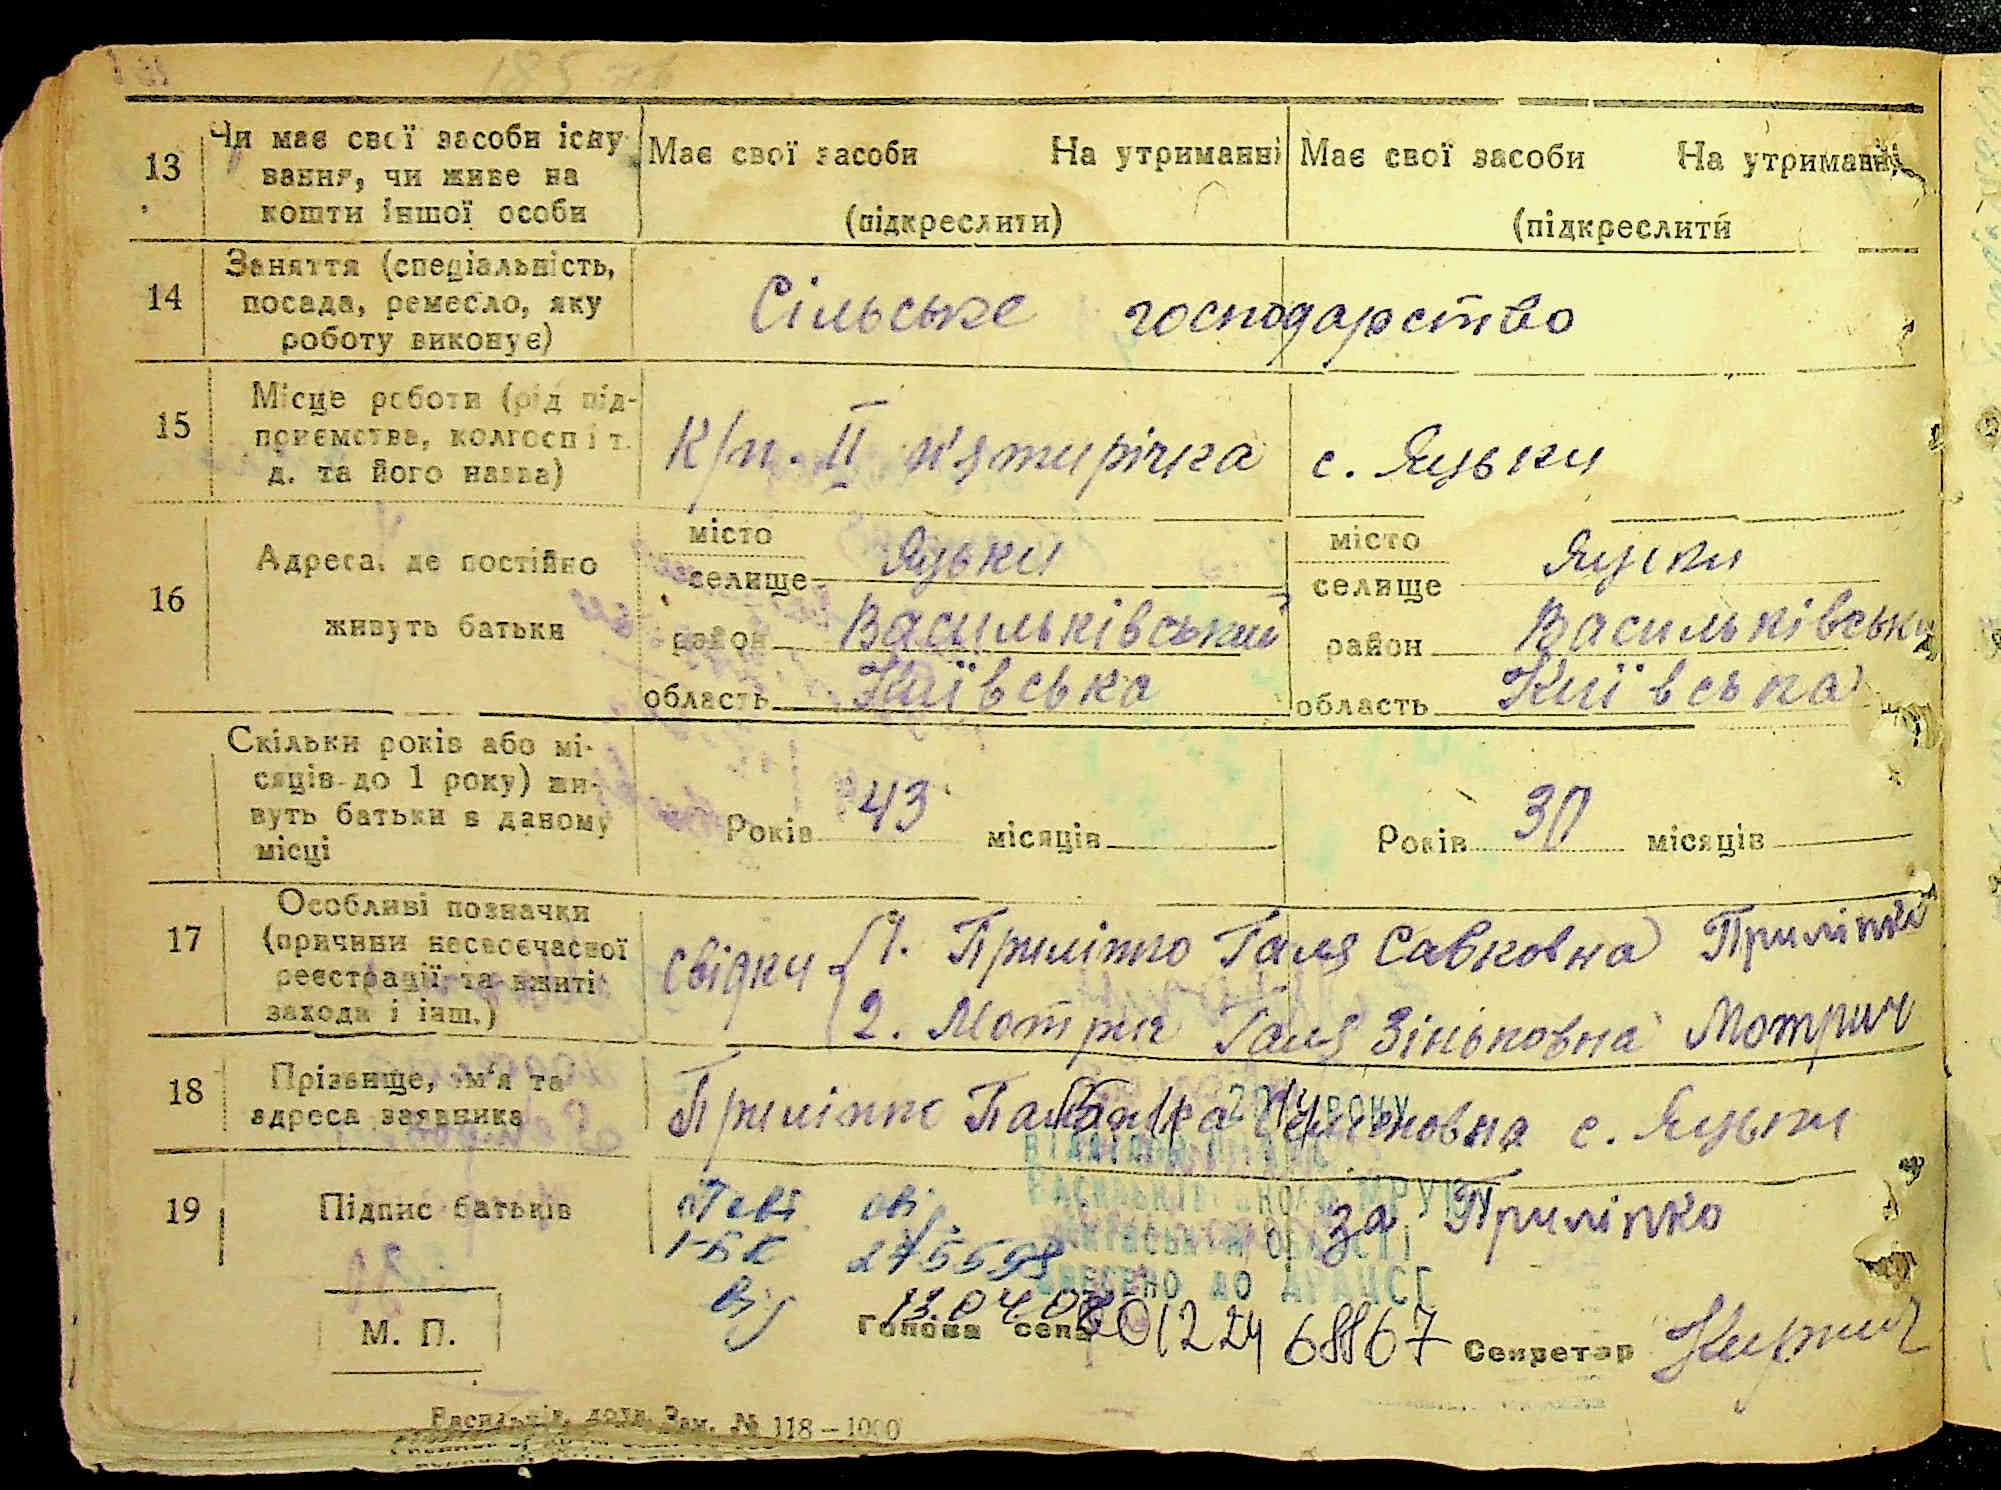 13 Чи має свої засоби існу- Має свої засоби На утриманні Має свої засоби На утриманні
вання, чи живе на
кошти іншої особи (підкреслити) (підкреслити
14 Заняття (спеціальність,
посада, ремесло, яку Сільське господарство
роботу виконує)
15 Місце роботи (рід під-
приємства, колгосп і т. К/п. ІІ п'ятирічка с. Яцьки
д. та його назва)
16 Адреса, де постійно
живуть батьки
місто Яцьки місто Яцьки
селище селище
район Васильківський район Васильківськи
область Київська область Київська
Скільки років або мі-
сяців до 1 року) жи-
вуть батьки в даному Років 43 місяців Років 30 місяців
місці
17 Особливі позначки
(причини несвоєчасної свідки 1. Приліпко Галя Савковна Приліпко
реєстрації та вжиті
заходи і інш.) 2. Мотрич Галя Зіньковна Мотрич
18 Прізвище, ім'я та
адреса заявника Приліпко с. Яцьки
2014 року
ВНЕСЕНО ДО ДРАЦСГ
19 Підпис батьків за Приліпко
1-БК 275559
від 13.04.07
М. П. Голова сель 00122468867 Секретар
Васильків, Зам. № 118 – 1000